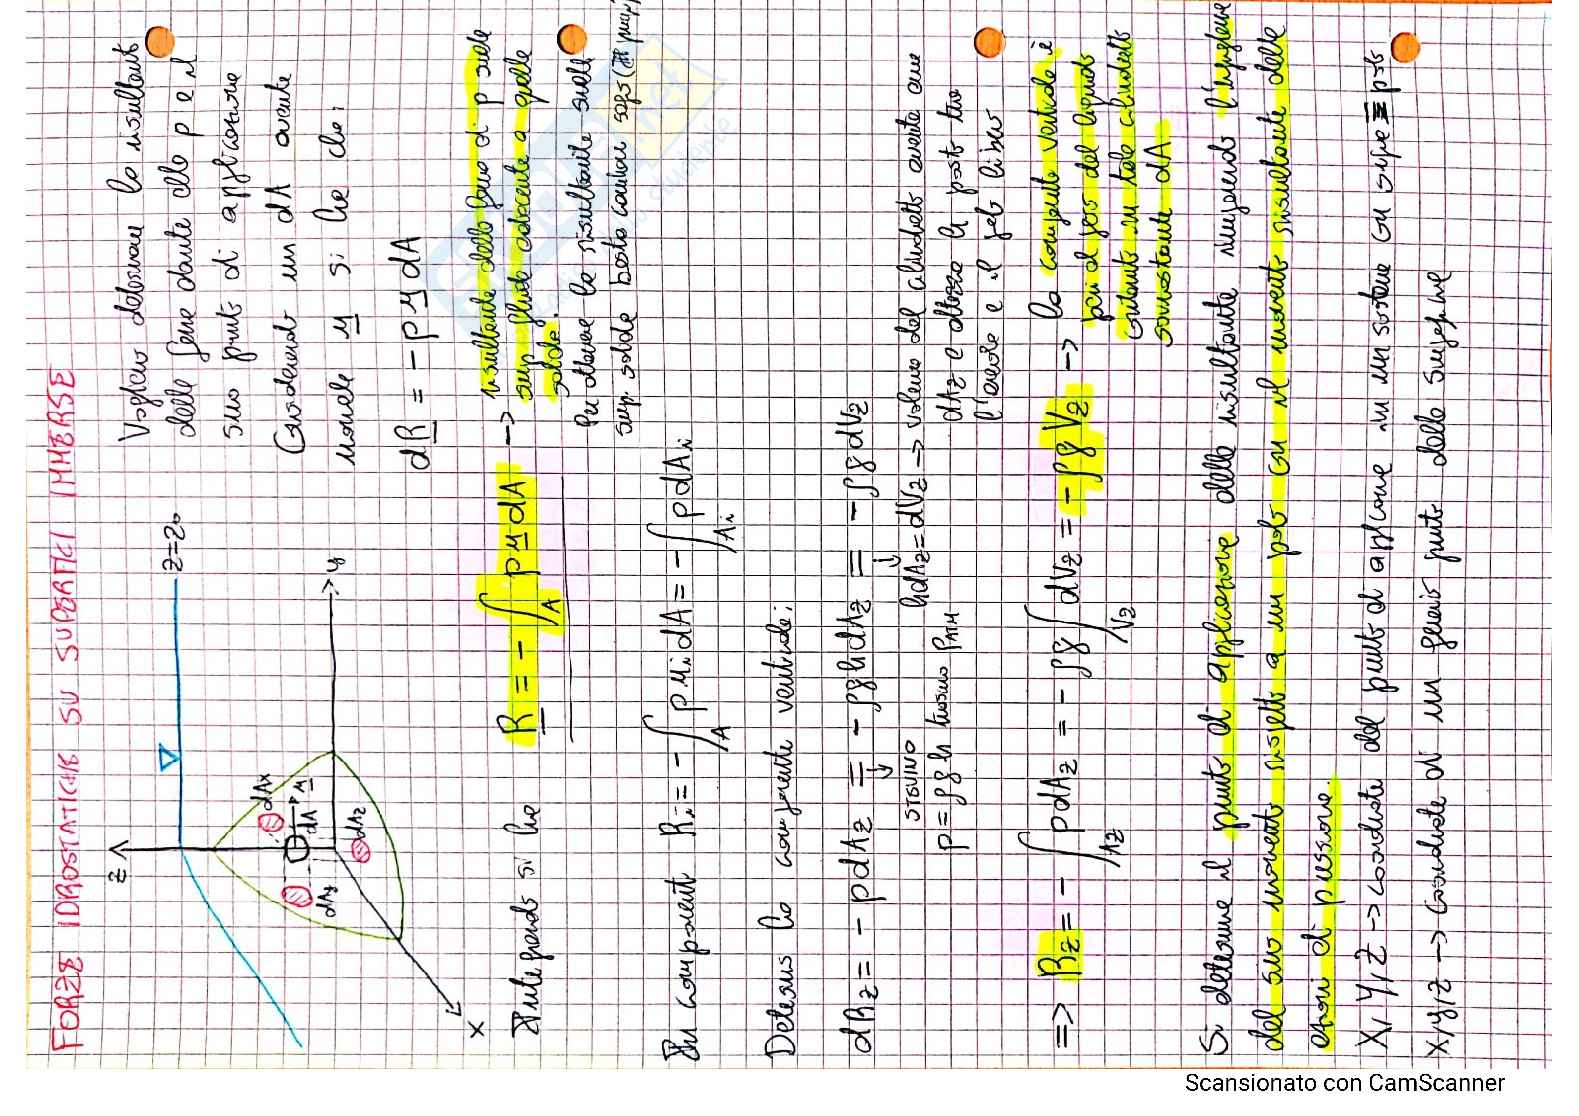 FORZE IDROSTATICHE SU SUPERFICI IMMERSE
z
z=z₀
y
x
dAx
dA
u
dAy
dAz
Vogliamo determinare la risultante
delle forze dovute alla p e il
suo punto di applicazione
Considerando un dA avente
normale u si ha che:
dR = - p u dA
Integrando si ha R = - ∫A p u dA → risultante delle forze di p sulla
sup. fluida adiacente a quella
solida.
Per ottenere la risultante sulla
sup. solida basta cambiar segno
In componenti Ri = - ∫A p ui dA = - ∫Ai p dAi
Determino la componente verticale:
dRz = - p dAz = - ρghdAz = - ρg dVz
STEVINO
p = ρgh
hdAz = dVz → volume del cilindretto avente area
dAz e altezza la posta tra
l'areola e il pelo libero
=> Rz = - ∫Az p dAz = - ρg ∫Vz dVz = - ρg Vz → la componente verticale è
pari al peso del liquido
contenuto in tale cilindretto
sovrastante dA
Si determina il punto di applicazione della risultante imponendo l'uguaglianza
del suo momento rispetto a un polo con il momento risultante delle
azioni di pressione.
X, Y, Z → coordinate del punto di applicazione in un sistema con origine ≡ polo
x, y, z → coordinate di un generico punto della superficie
Scansionato con CamScanner